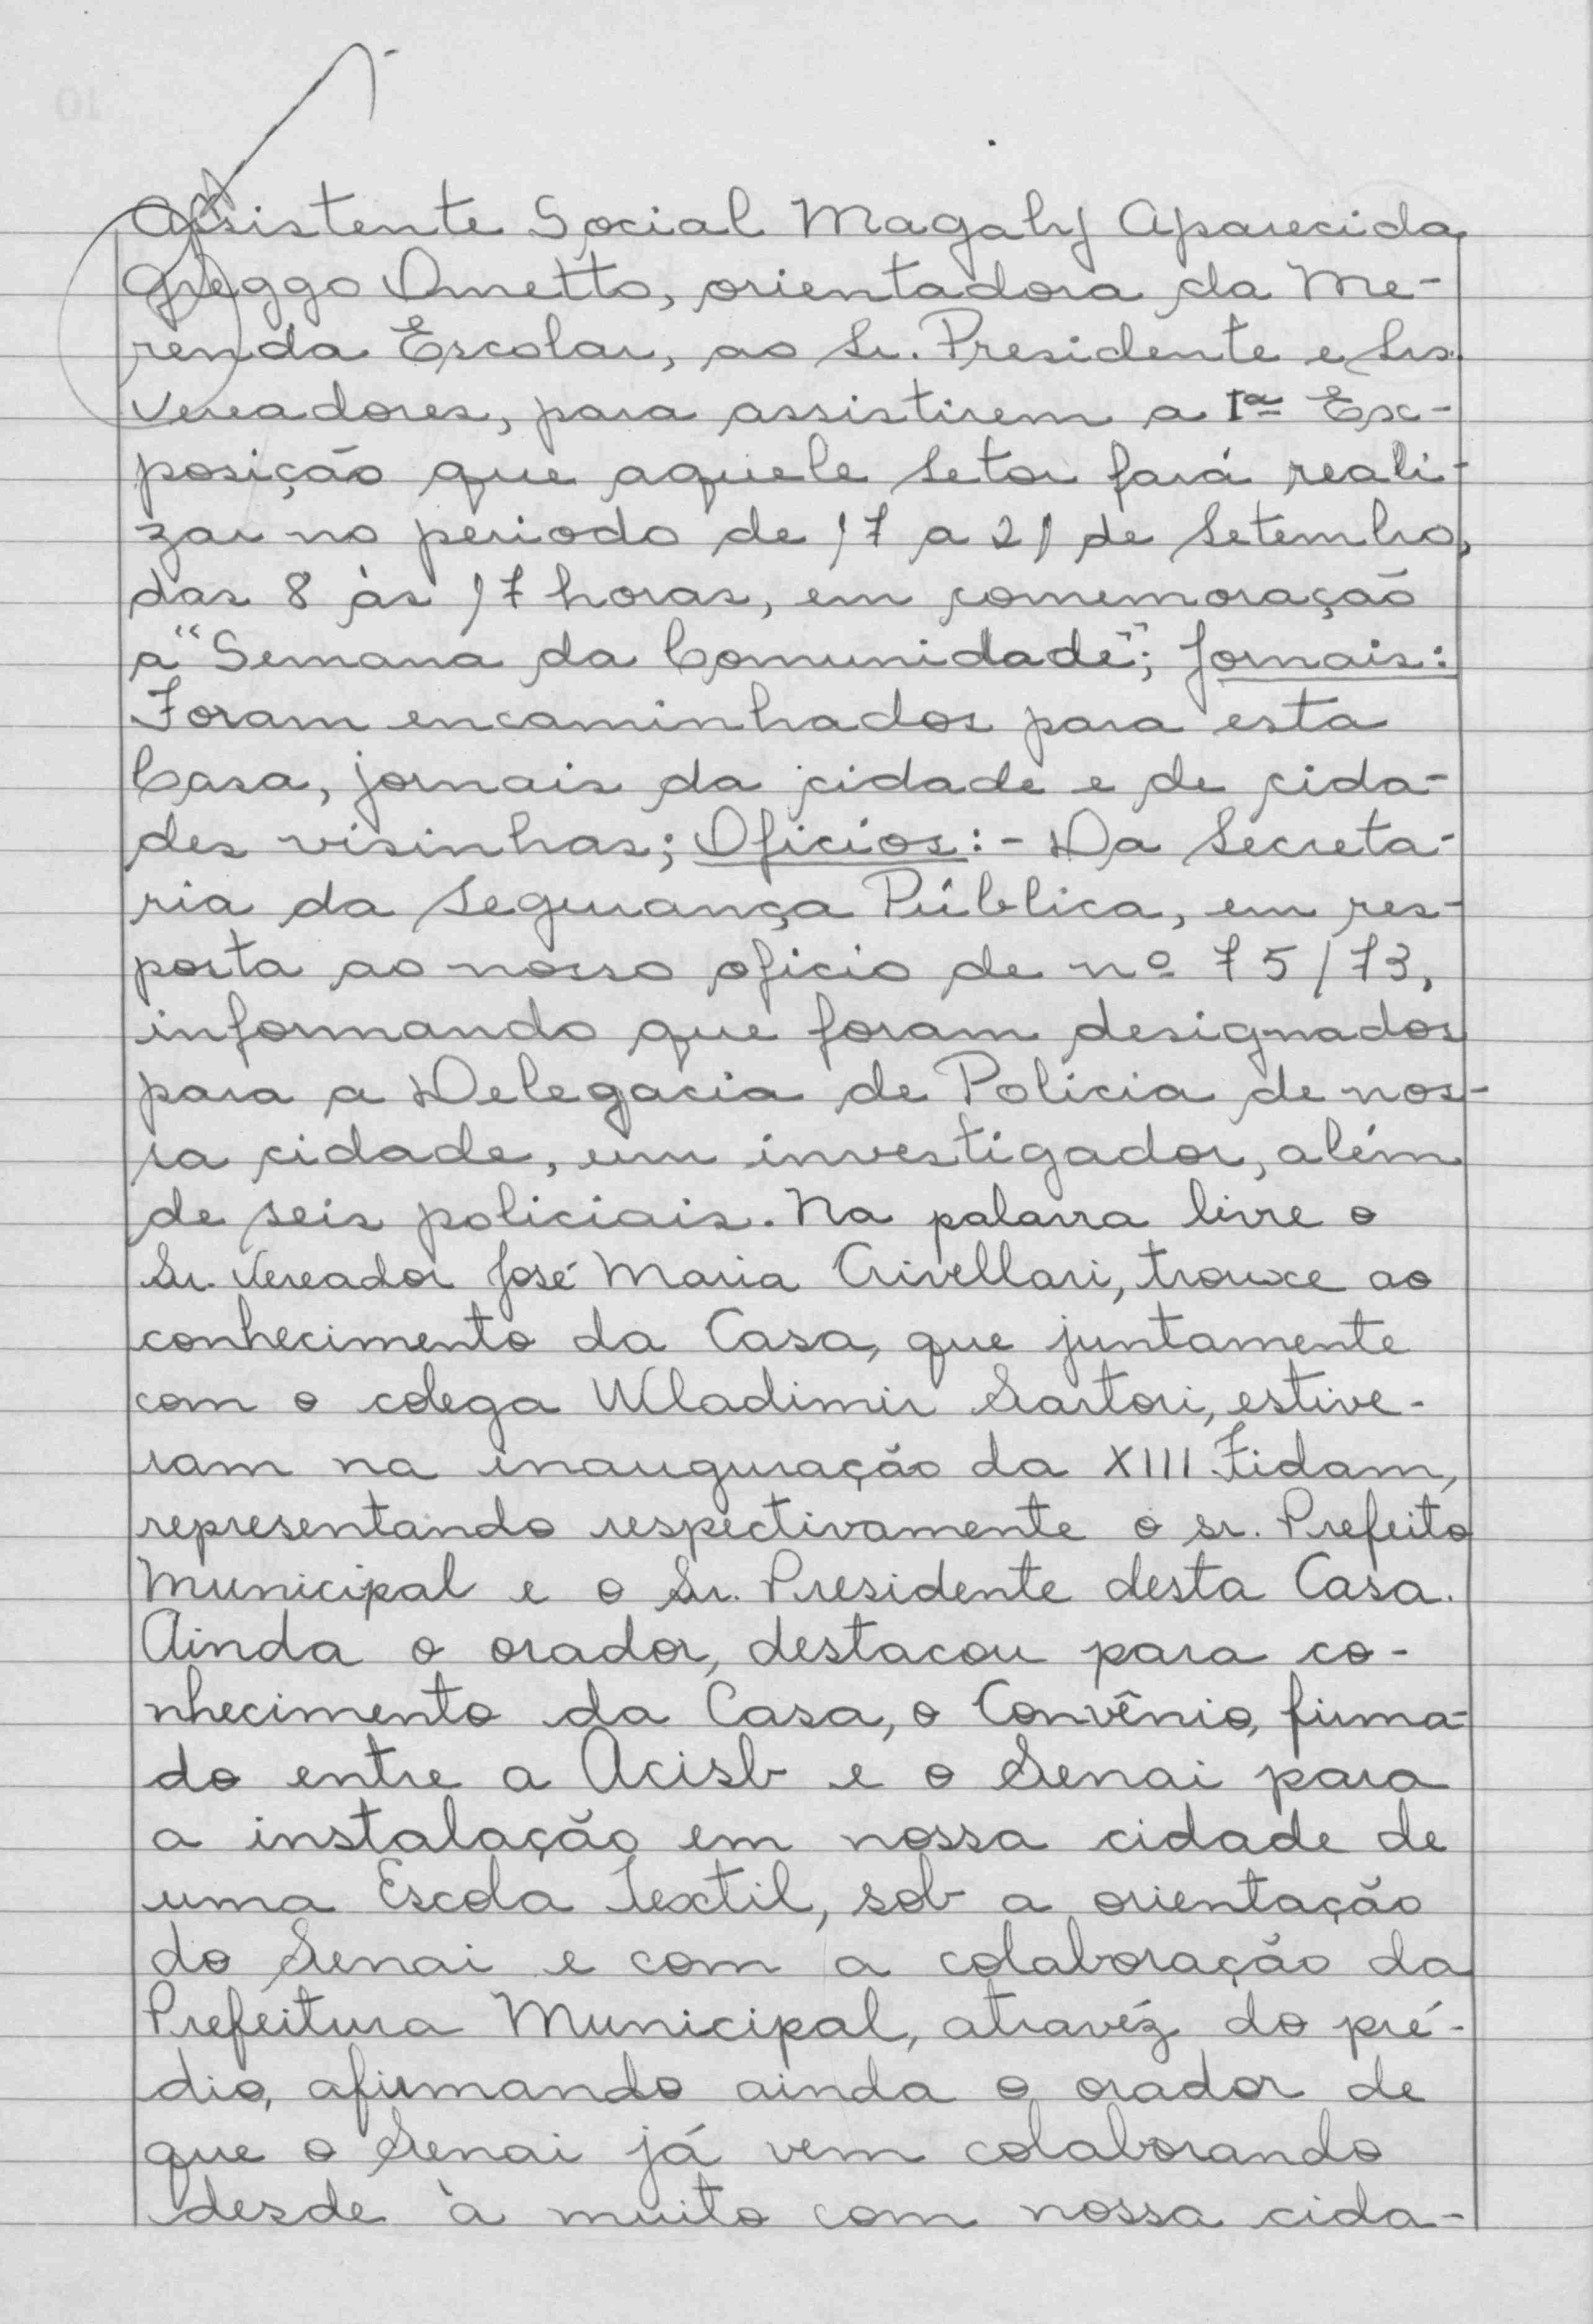 Assistente Social Magaly Aparecida
Greggo Ometto, orientadora da Me-
renda Escolar, ao Sr. Presidente e Srs.
Vereadores, para assistirem a Iª Ex-
posição que aquele setor fará reali-
zar no periodo de 17 a 21 de Setembro,
das 8 às 17 horas, em comemoração
a "Semana da Comunidade"; Jornais:
Foram encaminhados para esta
Casa, jornais da cidade e de cida-
des visinhas; Oficios:- Da Secreta-
ria da Segurança Pública, em res-
posta ao nosso oficio de nº 75/73,
informando que foram designados
para a Delegacia de Policia de nos-
sa cidade, um investigador, além
de seis policiais. Na palavra livre o
Sr. Vereador José Maria Crivellari, trouxe ao
conhecimento da Casa, que juntamente
com o colega Wladimir Sartori, estive-
ram na inauguração da XIII Fidam,
representando respectivamente o sr. Prefeito
Municipal e o Sr. Presidente desta Casa.
Ainda o orador, destacou para co-
nhecimento da Casa, o Convênio, firma-
do entre a Acisb e o Senai para
a instalação em nossa cidade de
uma Escola Textil, sob a orientação
do Senai e com a colaboração da
Prefeitura Municipal, atravéz do pré-
dio, afirmando ainda o orador de
que o Senai já vem colaborando
desde à muito com nossa cida-